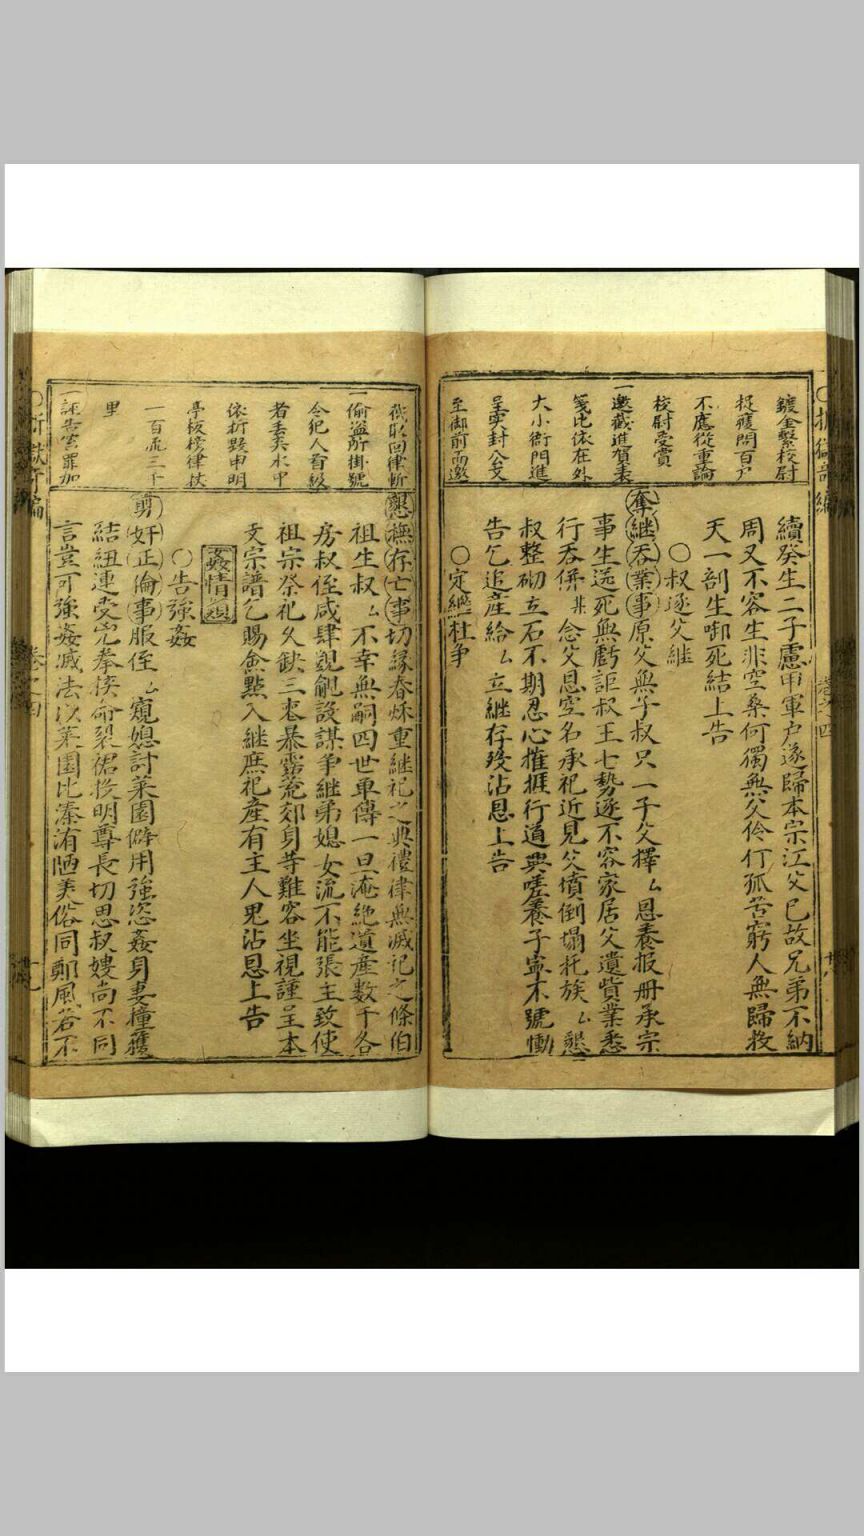 鍍金繫校尉
捉獲問百户
不應從重論
校尉受賞
一邀截進賀表
箋比依在外
大小衙門進
呈實封公文
至御前而邀
續癸生二子慮甲軍户遂歸本宗江父已故兄弟不納
周又不容生非空桑何獨無父伶仃孤苦窮人無歸投
天一剖生啣死結上告
○叔逐父繼
奪繼吞業事原父無子叔只一子父擇厶恩養报册承宗
事生送死無虧詎叔王七勢逐不容家居父遺貲業悉
行吞併某念父恩空名承祀近見父墳倒塌托族厶懇
叔整砌立石不期忍心摧捱行道興嗟養子寧不號慟
告乞追產給厶立継存殁沾恩上告
○定繼杜爭
截取回律斬
一偷盜所掛號
令犯人首級
者丟弃水中
依折毀申明
亭板榜律杖
一百流三千
里
一誣告雪罪加
懇撫存亡事切緣春秋重継祀之典禮律無滅祀之條伯
祖生叔厶不幸無嗣四世単傳一旦淹絶遺産数千各
房叔侄咸肆覬覦設謀爭継弟媳女流不能張主致使
祖宗祭祀久缺三喪暴露荒郊身等難容坐視謹呈本
支宗譜乞賜僉點入継庶祀産有主人鬼沾恩上告
姦情類
○告強姦
剪奸正倫事服侄厶窺媳討菜園僻用強恣姦身妻撞獲
結紐連受兇拳挾命裂裙投明尊長切思叔嫂尚不同
言豈可強姦滅法以菜園比溱洧陋美俗同鄭風若不
卷之四